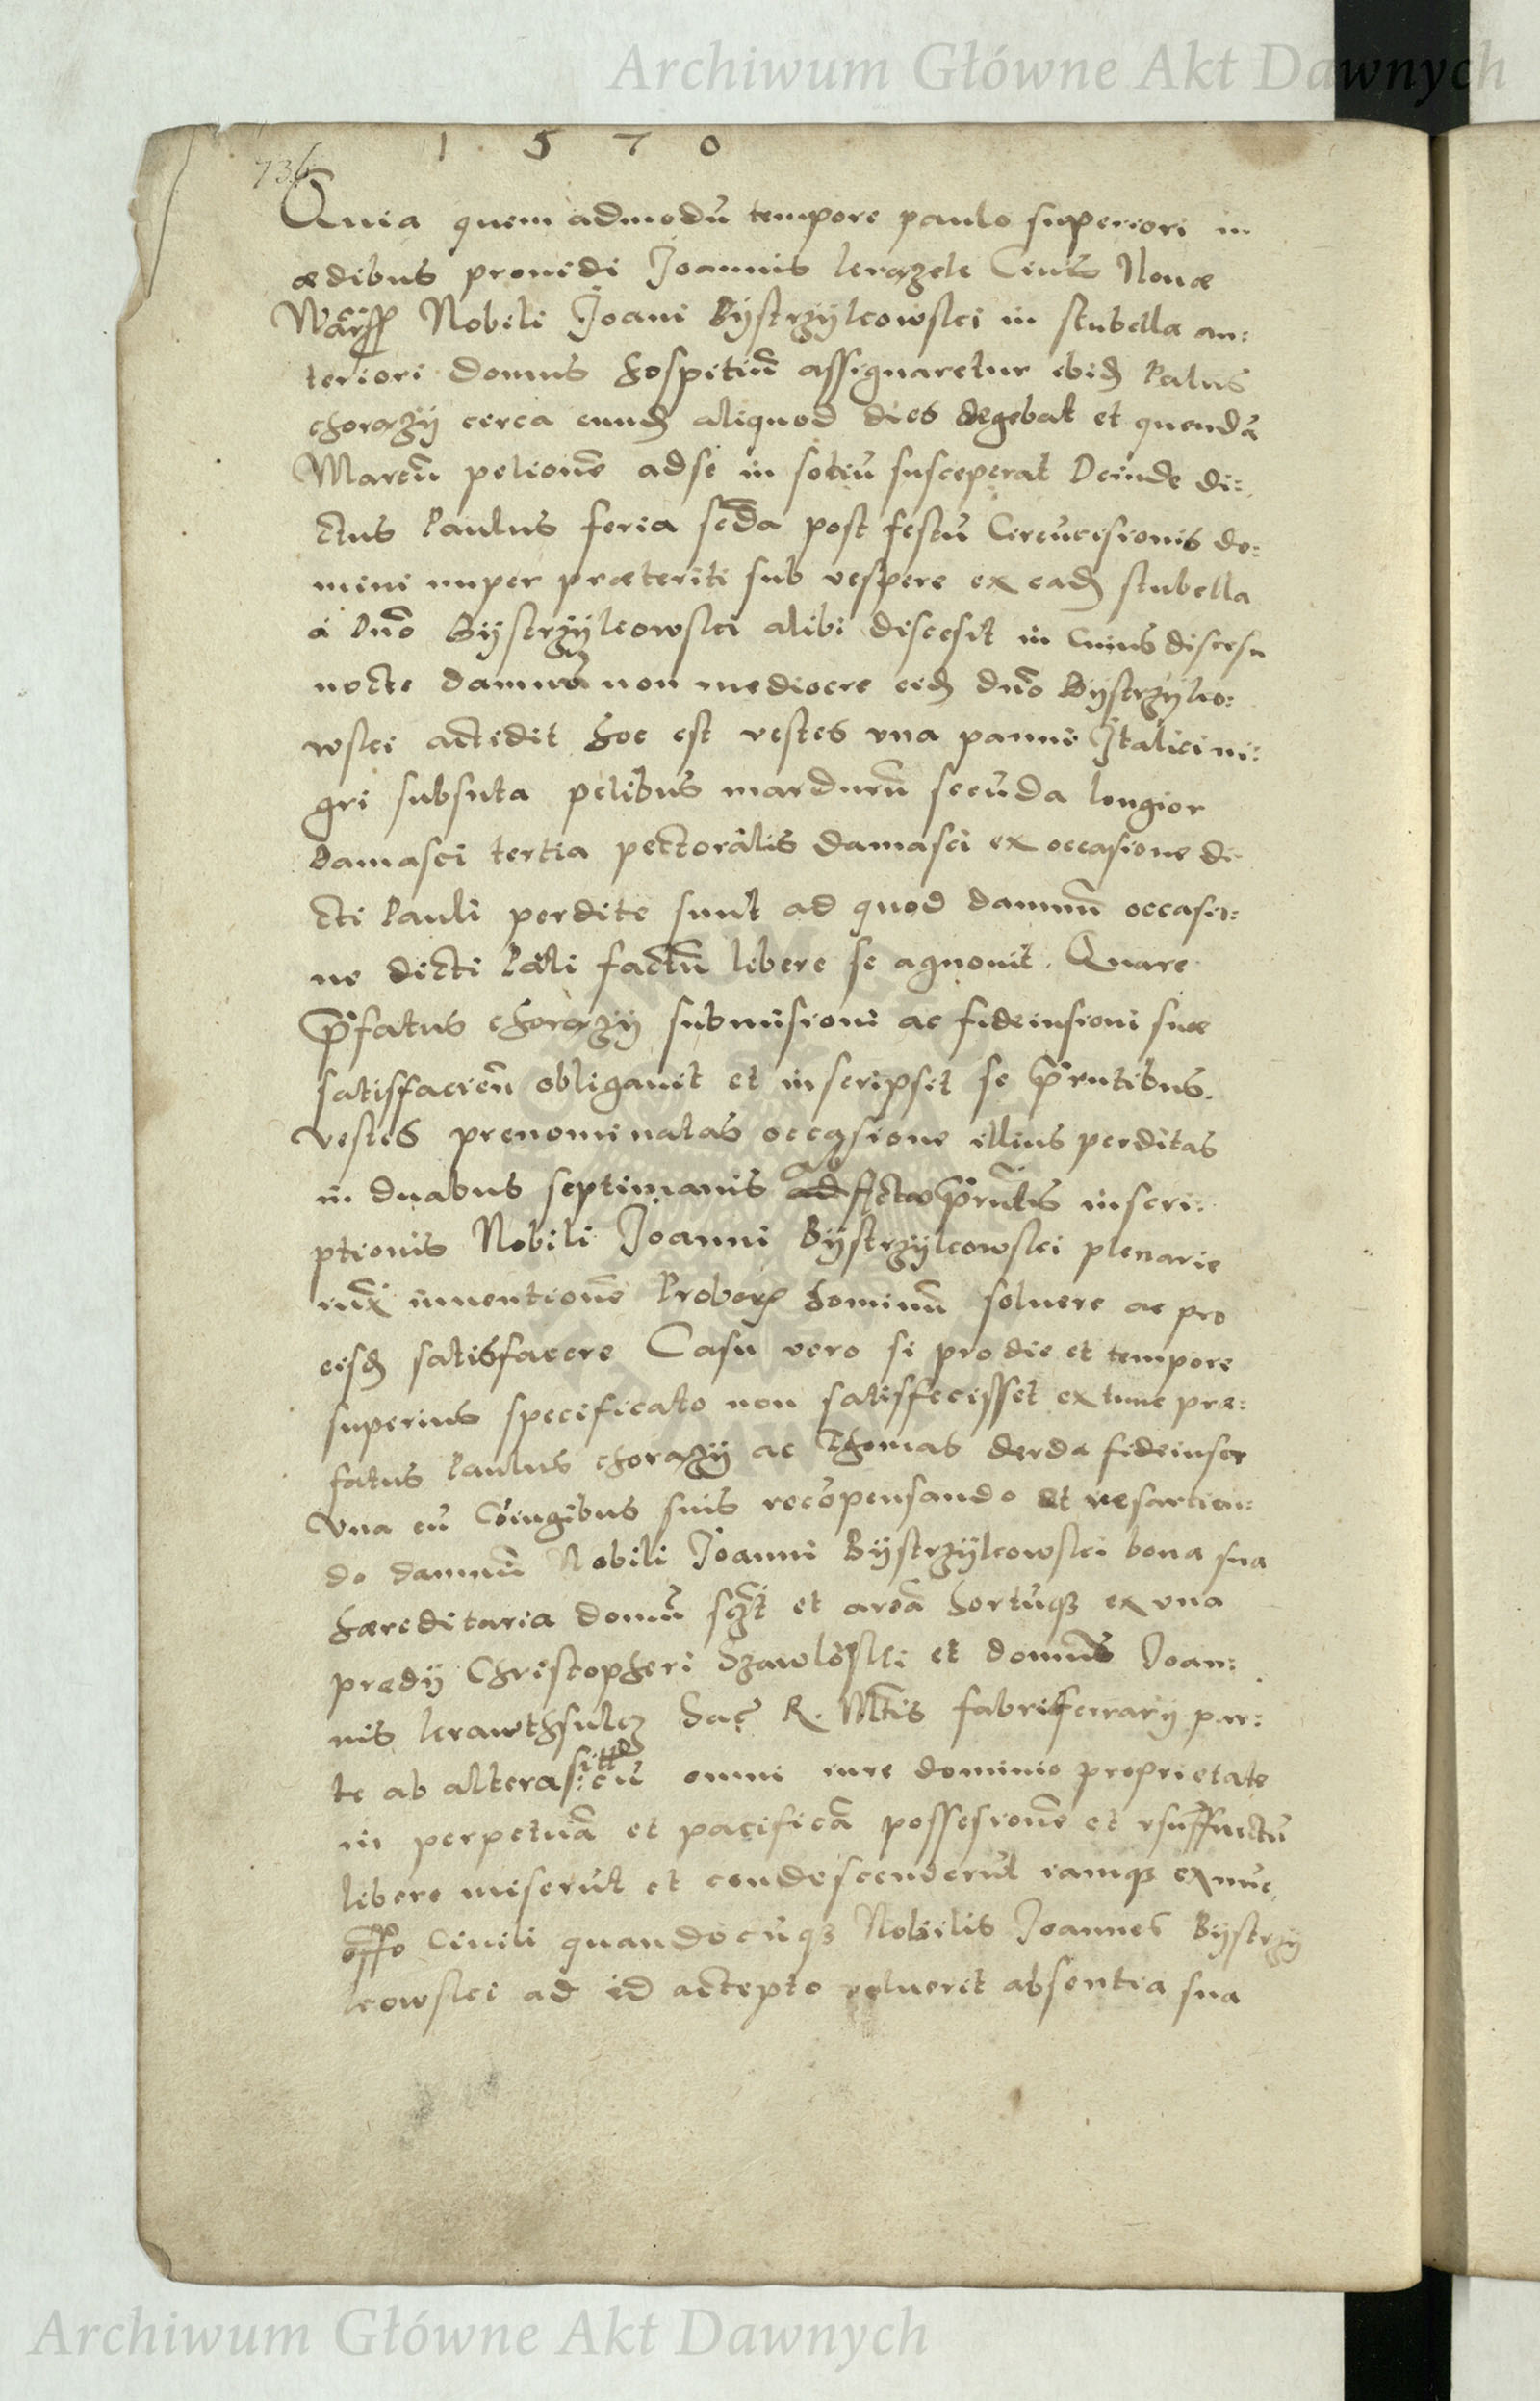 Archiwum Główne Akt Dawnych
1 5 7 0
736
Quia quem admodū tempore paulo superiori in
ædibus prouidi Joannis Civis Nouæ
Nobili Joani Bÿstrzÿkowski in stubella an:
teriori domus hospitiū assignaretur ibid Palus
chorązÿ cerca eund aliquod dies degebat et quendā
Marcū pelionē adse in sotiū susceperat Deinde di:
ctus Paulus feria secda post festū Circucisionis do:
mini nuper præteriti sub vespere ex ead stubella
á Dno Bÿstrzÿkowski alibi discesit in Cuius discesu
nocte damnū non mediocre eid dno Bÿstrzÿko:
wski actidit hoc est vestes vna panni Italici ni:
gri subsuta pelibus mardurū secūda longior
Damasci tertia pectoralis damasci ex occasione di
cti Pauli perdite sunt ad quod damnū occasio:
ne dicti Pali factū libere se agnouit. Quare
p̄fatus chorązÿ submisioni ac fideiusioni suæ
satisfacien obligauit et inscripsit se p̄rntibus.
vestes prenominatas occasione illius perditas
in duabus septimanis ab actu p̄rntis inscri:
ptionis Nobili Joanni Bÿstrzÿkowski plenarie
iux inuentionē Probor hominū soluere ac pro
eisd satisfacere Casu vero si pro die et tempore
superius specificato non satisfecisset extunc præ:
fatus Paulus chorązÿ ac Thomas derda fideiusor
vna cū Cōiugibus suis recōpensando et resarcien:
do damnū Nobili Joanni Bÿstrzÿkowski bona sua
hæreditaria domū et areā hortūq3 ex vna
prædÿ Christopheri et domus Joan:
nis Sac R. Mtis fabri ferrarÿ par:
te ab altera sitt cū omni iure dominio proprietate
in perpetuā et pacificā possesionē et vsufructū
libere miserūt et condescenderūt iamq3 ex nūc
offo Ciuili quandocūq3 Nobilis Joannes Bÿstrzÿ
kowski ad id actepto voluerit absentia sua
Archiwum Główne Akt Dawnych